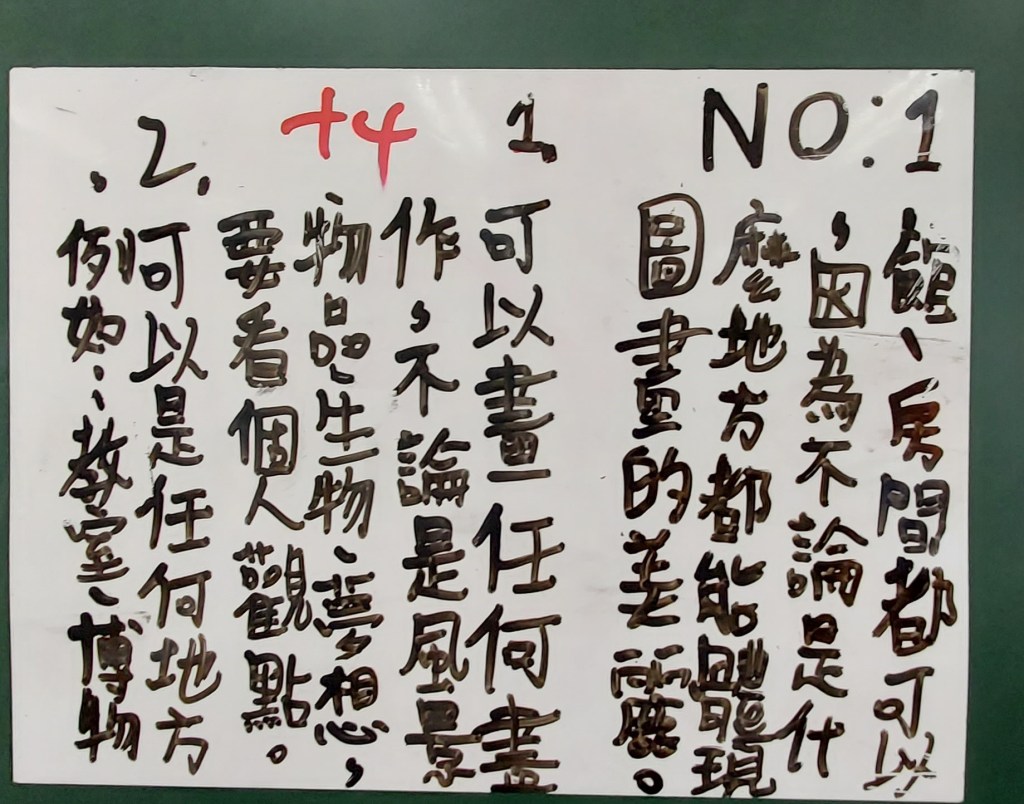 NO:1
1.
可以畫任何畫
作，不論是風景
物品、生物、夢想，
要看個人觀點。
+4
2.
可以是任何地方
，例如：教室、博物
館、房間都可以
，因為不論是什
麼地方都能體現
圖畫的美麗。